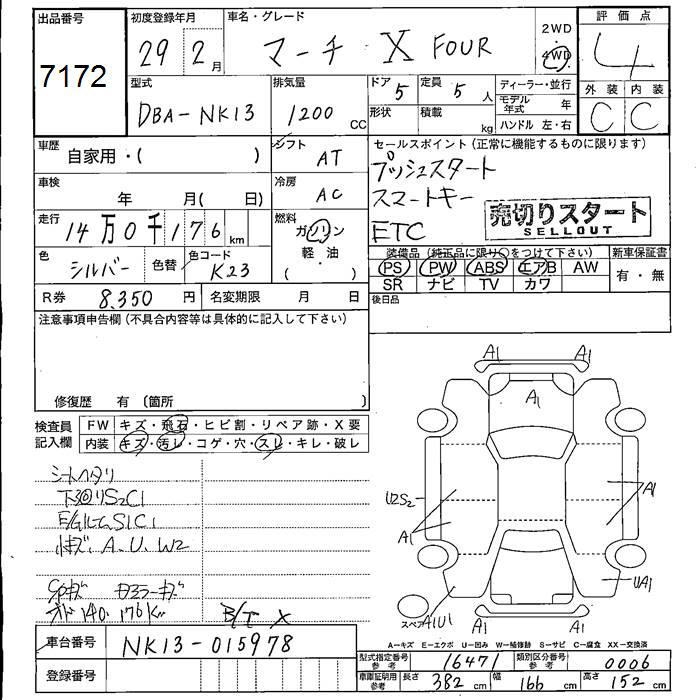 出品番号 初度登録年月 車名・グレード 2WD 4WD 評価点
7172 29年 2月 マーチ X FOUR 4
型式 排気量 ドア 5 定員 5人 ディーラー・並行 外装 内装
DBA-NK13 1200 CC 形状 積載 kg モデル年式 年 C C
ハンドル 左・右
車歴 自家用・( ) シフト AT セールスポイント(正常に機能するものに限ります)
プッシュスタート
車検 年 月( 日) 冷房 AC スマートキー
走行 14万0千176km 燃料 ガソリン 軽・油 ( ) ETC 売切りスタート
SELLOUT
色 シルバー 色替 色コード K23 装備品(純正品に限り○をつけて下さい) 新車保証書
PS PW ABS エアB AW 有・無
SR ナビ TV カワ
R券 8,350円 名変期限 月 日 後日品
注意事項申告欄(不具合内容等は具体的に記入して下さい)
修復歴 有(箇所 )
検査員記入欄 FW キズ・飛石・ヒビ割・リペア跡・X要
内装 キズ・汚レ・コゲ・穴・スレ・キレ・破レ
シートヘタリ
下回りS2C1
E/GルームS1C1
小キズ、A.U.W2
ホド140.176K B/T X
A1 A1
A1
U2S2 A1
A1
UA1
スペア A1U1 A1 A1
A=キズ E=エクボ U=凹み W=補修跡 S=サビ C=腐食 XX=交換済
車台番号 NK13-015978
型式指定番号 参考 16471 類別区分番号 参考 0006
登録番号
車庫証明用 参考 長さ 382cm 幅 166cm 高さ 152cm